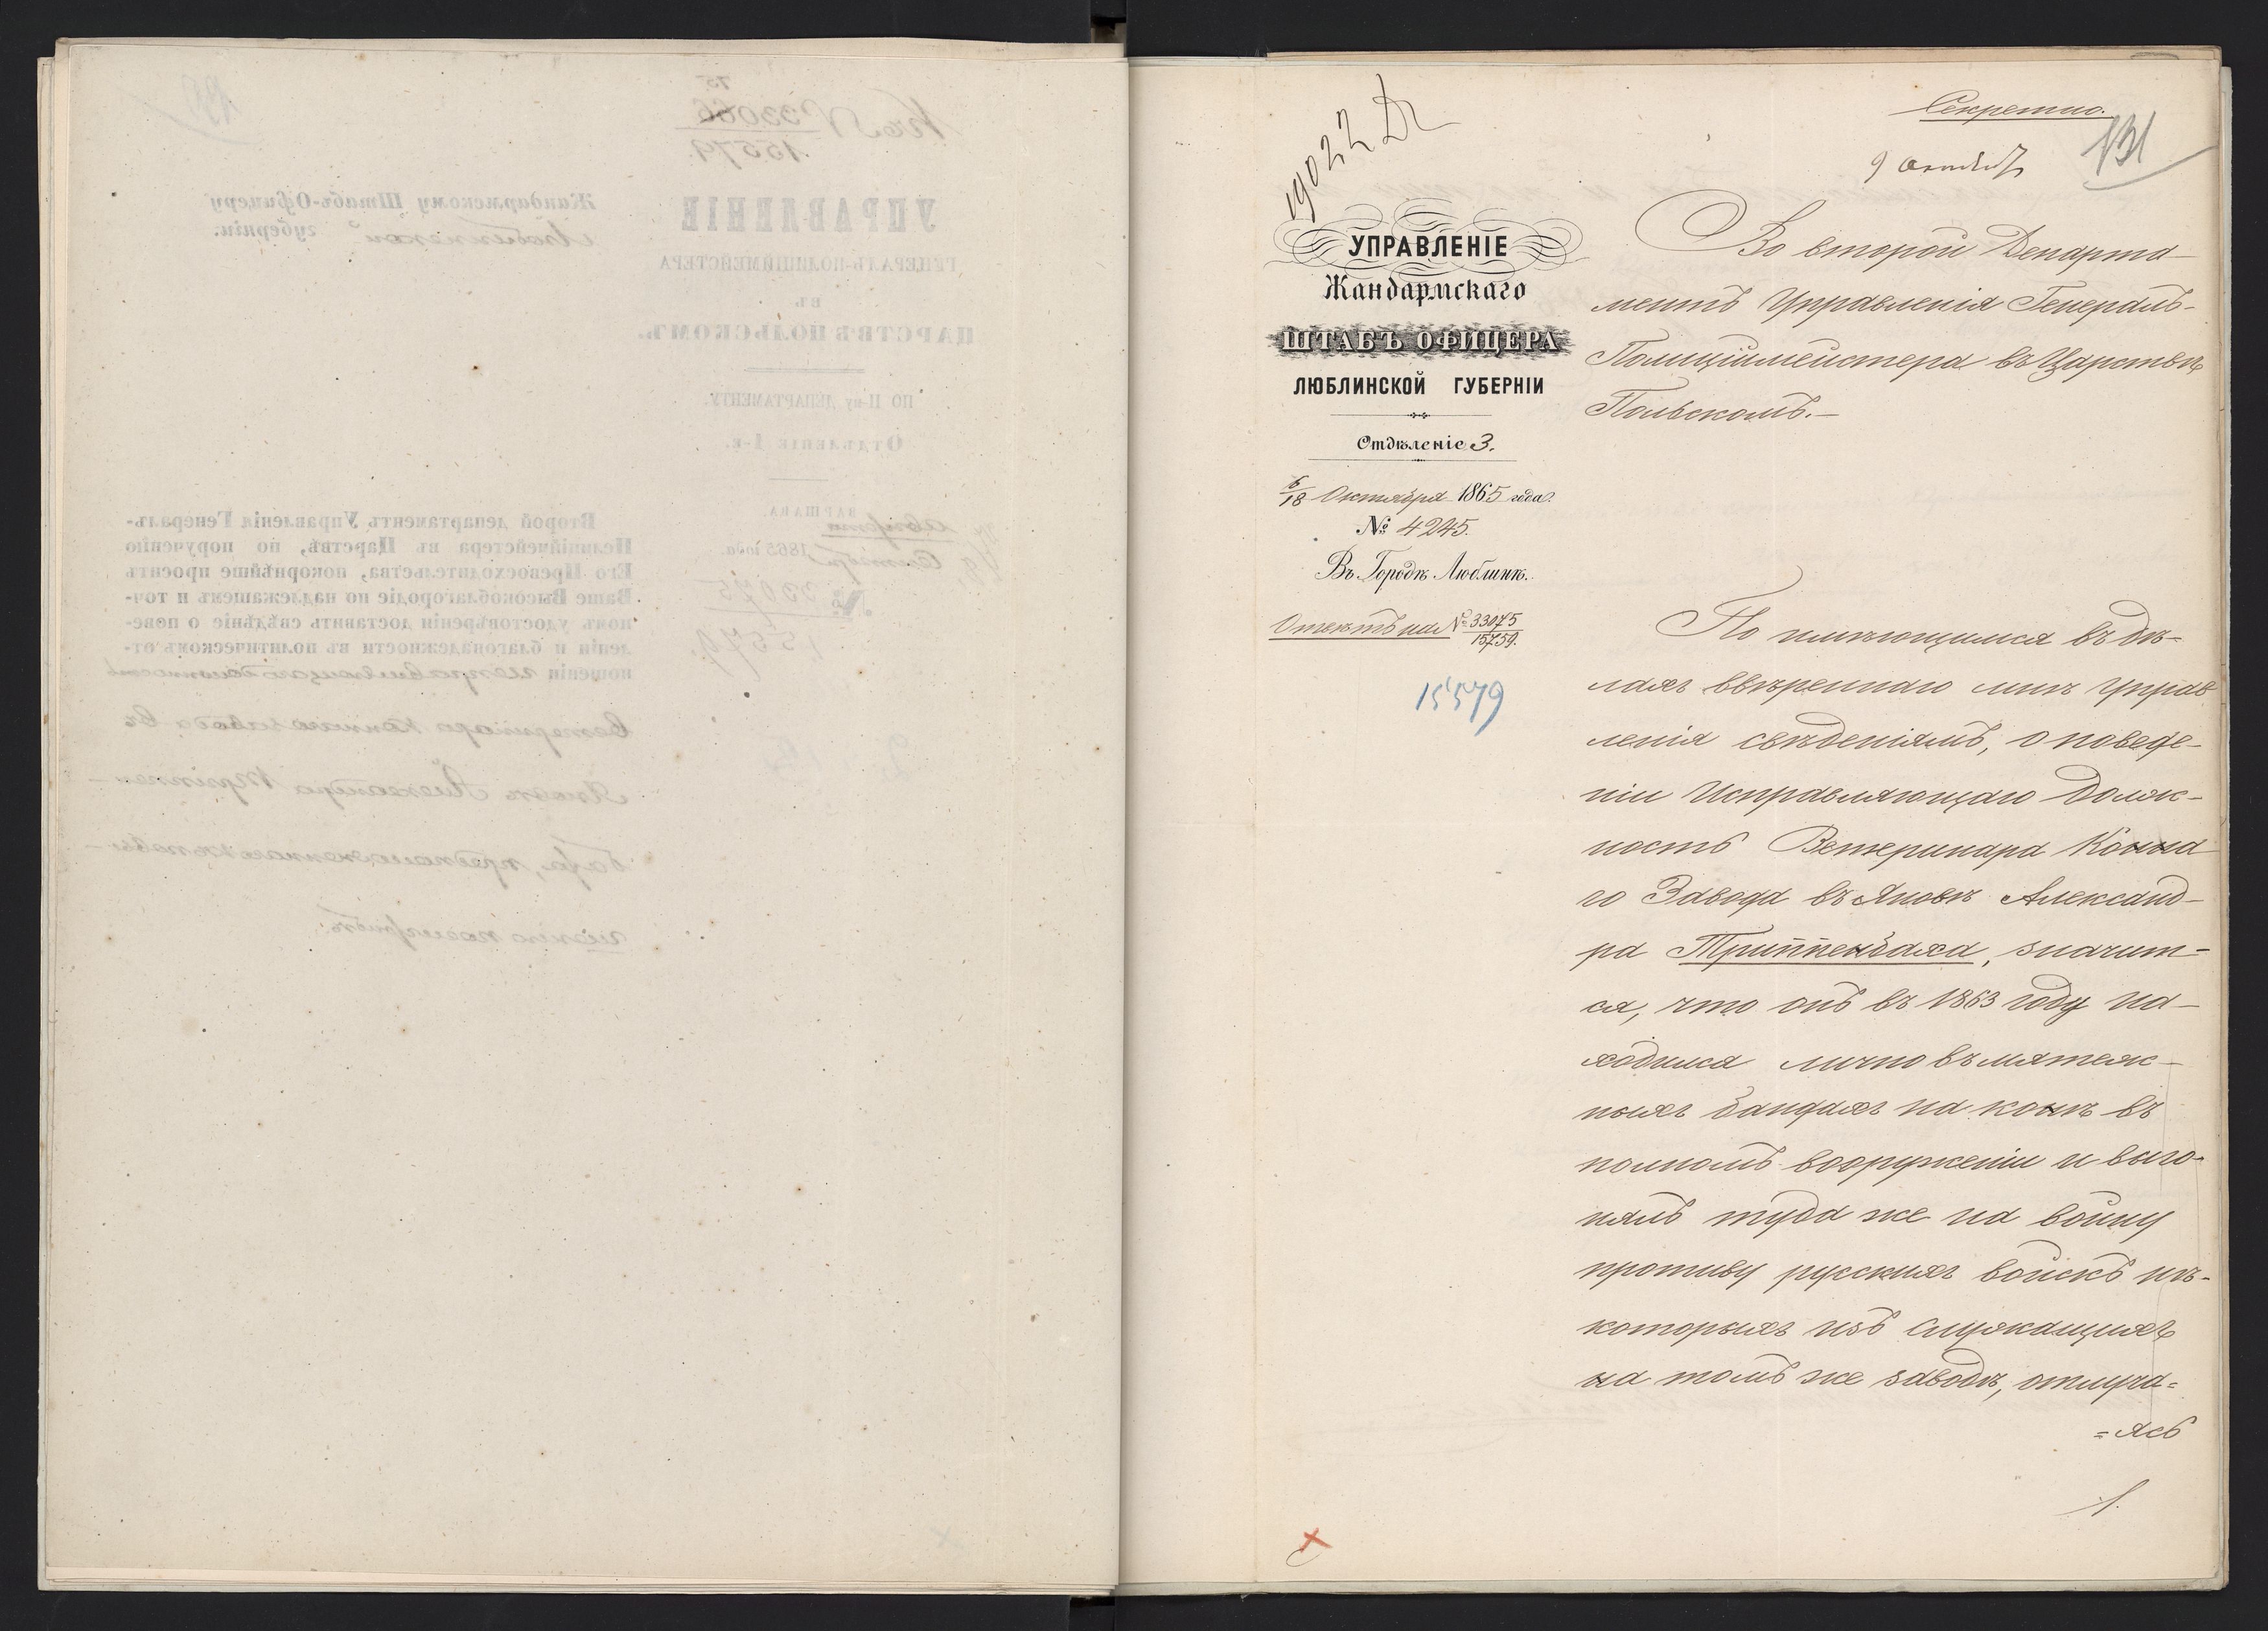 19022
Секретно.
131
9 Октября
УПРАВЛЕНІЕ
Жандармскаго
ШТАБЪ ОФИЦЕРА
ЛЮБЛИНСКОЙ ГУБЕРНІИ
Отдѣленіе 3.
6/18 Октября 1865 года.
№ 4245.
Въ Городѣ Люблинѣ.
Отвѣтъ на № 33075/15759.
15579
Во второй Департа-
ментъ Управленія Генералъ-
Полиціймейстера въ Царствѣ
Польскомъ.—
По имѣющимся въ дѣ-
лахъ ввѣреннаго мнѣ Управ
ленія свѣденіямъ, о поведе-
ніи Исправляющаго долж-
ность Ветеринара Конна
го Завода въ Яновѣ Александ-
ра Триппенбаха, значит-
ся, что онъ въ 1863 году на-
ходился лично въ мятеж-
ныхъ бандахъ на конѣ въ
полномъ вооруженіи и выго-
нялъ туда же на войну
противу русскихъ войскъ нѣ-
которыхъ изъ служащихъ
на томъ же заводѣ, отлуча=
=ясь
1.